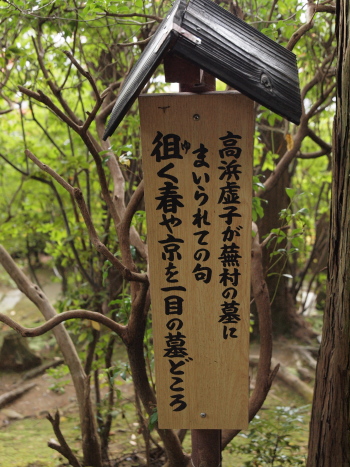 高浜虚子が蕪村の墓に
まいられての句
徂く春や京を一目の墓どころ